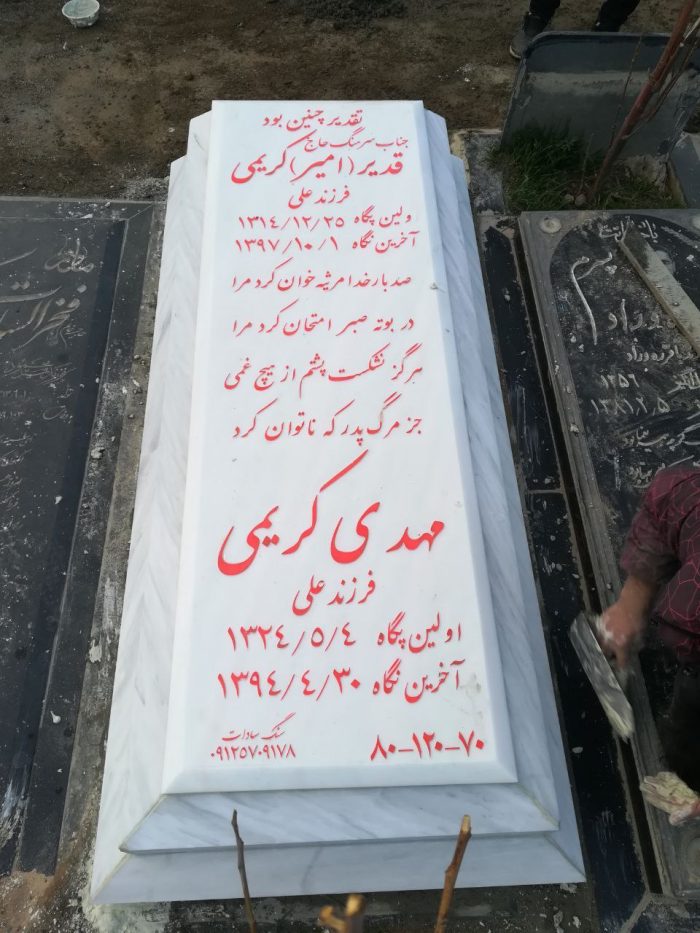 تقدیر چنین بود
جناب سرهنگ حاج
قدیر (امیر) کریمی
فرزند علی
اولین پگاه ۱۳۱٤/۱۲/۲۵
آخرین نگاه ۱۳۹۷/۱۰/۱
صد بار خدا مرثیه خوان کرد مرا
در بوته صبر امتحان کرد مرا
هرگز نشکست پشتم از هیچ غمی
جز مرگ پدر که ناتوان کرد
مهدی کریمی
فرزند علی
اولین پگاه ۱۳۲٤/۵/٤
آخرین نگاه ۱۳۹٤/٤/۳۰
سنگ سادات
۰۹۱۲۵۷۰۹۱۷۸
۸۰-۱۲۰-۷۰
۱۳۵۶